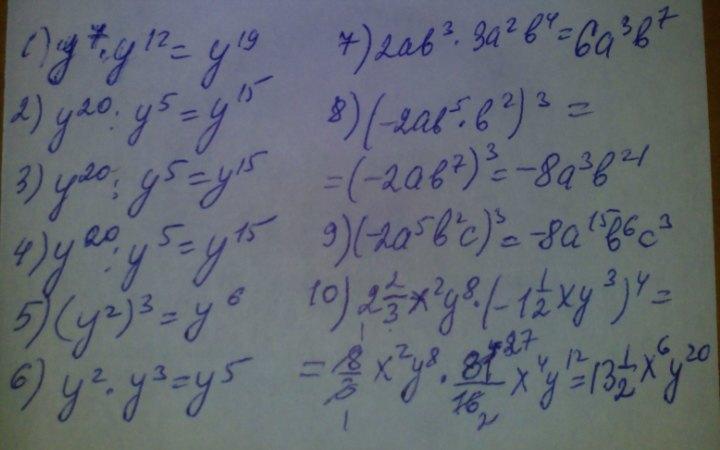 1) y⁷·y¹² = y¹⁹
2) y²⁰ : y⁵ = y¹⁵
3) y²⁰ : y⁵ = y¹⁵
4) y²⁰ : y⁵ = y¹⁵
5) (y²)³ = y⁶
6) y²·y³ = y⁵
7) 2ab³·3a²b⁴ = 6a³b⁷
8) (-2ab⁵·b²)³ =
= (-2ab⁷)³ = -8a³b²¹
9) (-2a⁵b²c)³ = -8a¹⁵b⁶c³
10) 2 2/3 x²y⁸·(-1 1/2 xy³)⁴ =
= 8/3 x²y⁸ · 81/16 x⁴y¹² = 13 1/2 x⁶y²⁰